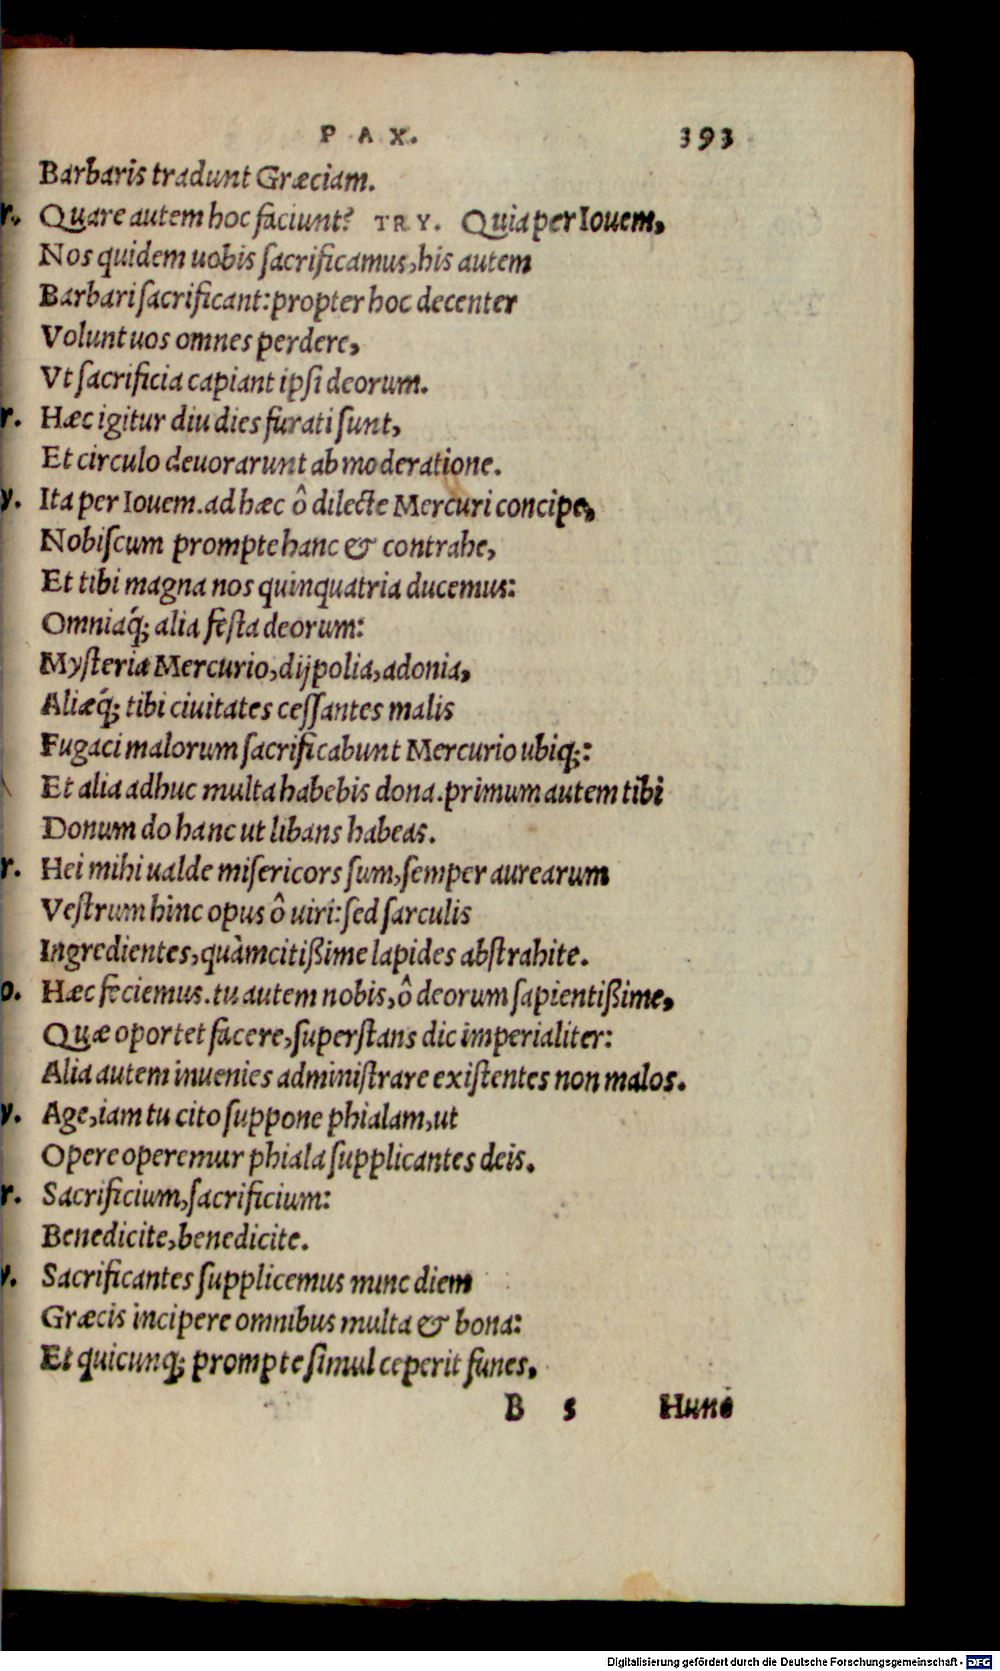 PAX. 393
Barbaris tradunt Græciam.
r. Quare autem hoc faciunt? TRY. Quia per Iouem,
Nos quidem uobis ſacrificamus, his autem
Barbari ſacrificant: propter hoc decenter
Volunt uos omnes perdere,
Vt ſacrificia capiant ipſi deorum.
r. Hæc igitur diu dies furati ſunt,
Et circulo deuorarunt ab moderatione.
y. Ita per Iouem. ad hæc ô dilecte Mercuri concipe,
Nobiſcum prompte hanc & contrahe,
Et tibi magna nos quinquatria ducemus:
Omniaq́; alia feſta deorum:
Myſteria Mercurio, dijpolia, adonia,
Aliæq́; tibi ciuitates ceſſantes malis
Fugaci malorum ſacrificabunt Mercurio ubiq;:
Et alia adhuc multa habebis dona. primum autem tibi
Donum do hanc ut libans habeas.
r. Hei mihi ualde miſericors ſum, ſemper aurearum
Veſtrum hinc opus ô uiri: ſed ſarculis
Ingredientes, quàm citißime lapides abſtrahite.
o. Hæc feciemus. tu autem nobis, ô deorum ſapientißime,
Quæ oportet facere, ſuperſtans dic imperialiter:
Alia autem inuenies adminiſtrare exiſtentes non malos.
y. Age, iam tu cito ſuppone phialam, ut
Opere operemur phiala ſupplicantes deis.
r. Sacrificium, ſacrificium:
Benedicite, benedicite.
y. Sacrificantes ſupplicemus nunc diem
Græcis incipere omnibus multa & bona:
Et quicunq; prompte ſimul ceperit funes,
B 5 Hunc
Digitalisierung gefördert durch die Deutsche Forschungsgemeinschaft - DFG